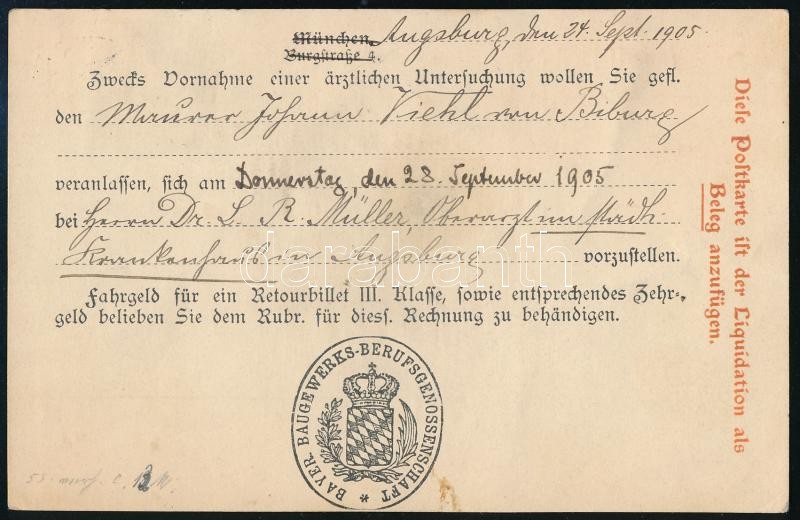 München, Augsburg, den 24. Sept. 1905.
Burgstraße 4.
Zwecks Vornahme einer ärztlichen Untersuchung wollen Sie gefl.
den Maurer Johann Viehl von Biburg
veranlassen, sich am Donnerstag, den 28. September 1905
bei Herrn Dr. L. R. Müller, Oberarzt im städt.
Krankenhaus in Augsburg vorzustellen.
Fahrgeld für ein Retourbillet III. Klasse, sowie entsprechendes Zehr-
geld belieben Sie dem Rubr. für diess. Rechnung zu behändigen.
Diese Postkarte ist der Liquidation als
Beleg anzufügen.
BAYER. BAUGEWERKS-BERUFSGENOSSENSCHAFT
darabanth